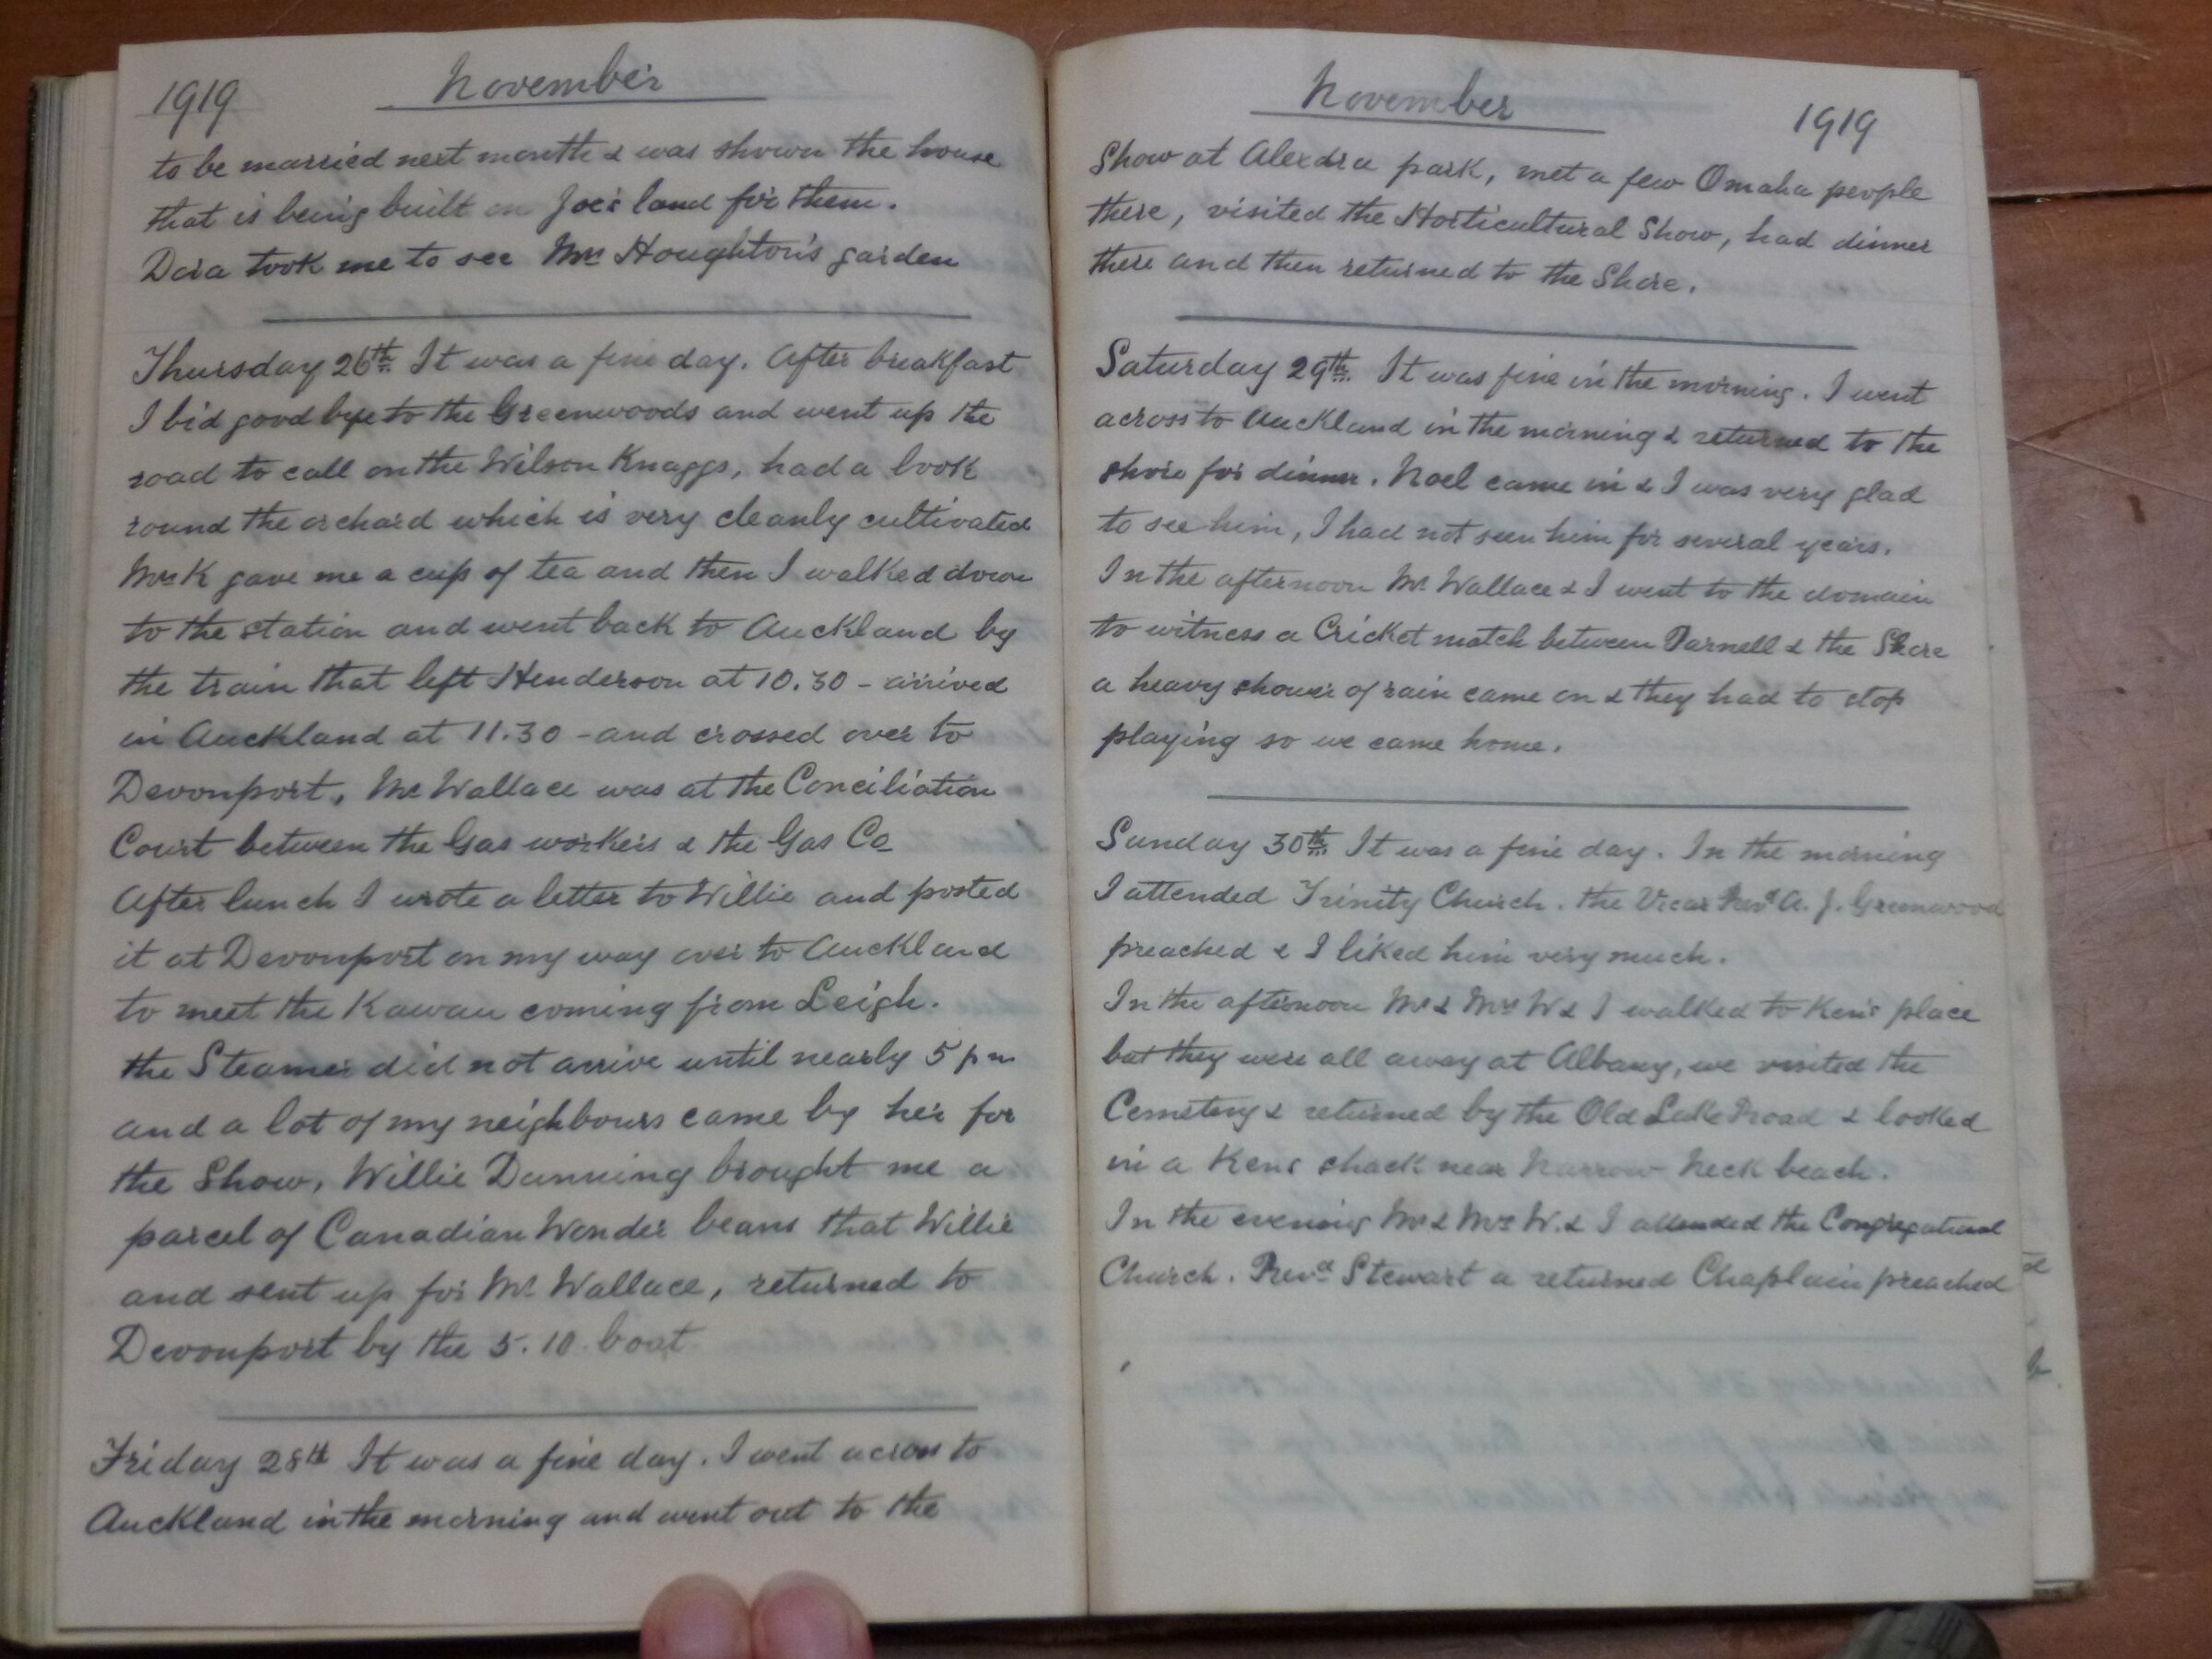 1919 November
to be married next month & was shown the house
that is being built on Joe's land for them.
Dora took me to see Mrs Houghton's garden
Thursday 26th It was a fine day. After breakfast
I bid good bye to the Greenwoods and went up the
road to call on the Wilson Knaggs, had a look
round the orchard which is very cleanly cultivated
Mrs K gave me a cup of tea and then I walked down
to the station and went back to Auckland by
the train that left Henderson at 10.30 - arrived
in Auckland at 11.30 - and crossed over to
Devonport, Mr Wallace was at the Conciliation
Court between the Gas workers & the Gas Co
After lunch I wrote a letter to Willie and posted
it at Devonport on my way over to Auckland
to meet the Kawau coming from Leigh.
the Steamer did not arrive until nearly 5 pm
and a lot of my neighbours came by her for
the Show, Willie Dunning brought me a
parcel of Canadian Wonder beans that Willie
and sent up for Mr Wallace, returned to
Devonport by the 5.10 boat
Friday 28th It was a fine day. I went across to
Auckland in the morning and went out to the
November 1919
Show at Alexdra park, met a few Omaha people
there, visited the Horticultural Show, had dinner
there and then returned to the Shore.
Saturday 29th It was fine in the morning. I went
across to Auckland in the morning & returned to the
shore for dinner. Noel came in & I was very glad
to see him, I had not seen him for several years.
In the afternoon Mr Wallace & I went to the domain
to witness a Cricket match between Parnell & the Shore
a heavy shower of rain came on & they had to stop
playing so we came home.
Sunday 30th It was a fine day. In the morning
I attended Trinity Church. the Vicar Revd A. J. Greenwood
preached & I liked him very much.
In the afternoon Mr & Mrs W & I walked to Ken's place
but they were all away at Albany, we visited the
Cemetery & returned by the Old Lake Road & looked
in a Kens shack near Narrow Neck beach.
In the evening Mr & Mrs W. & I attended the Congregational
Church. Revd Stewart a returned Chaplain preached